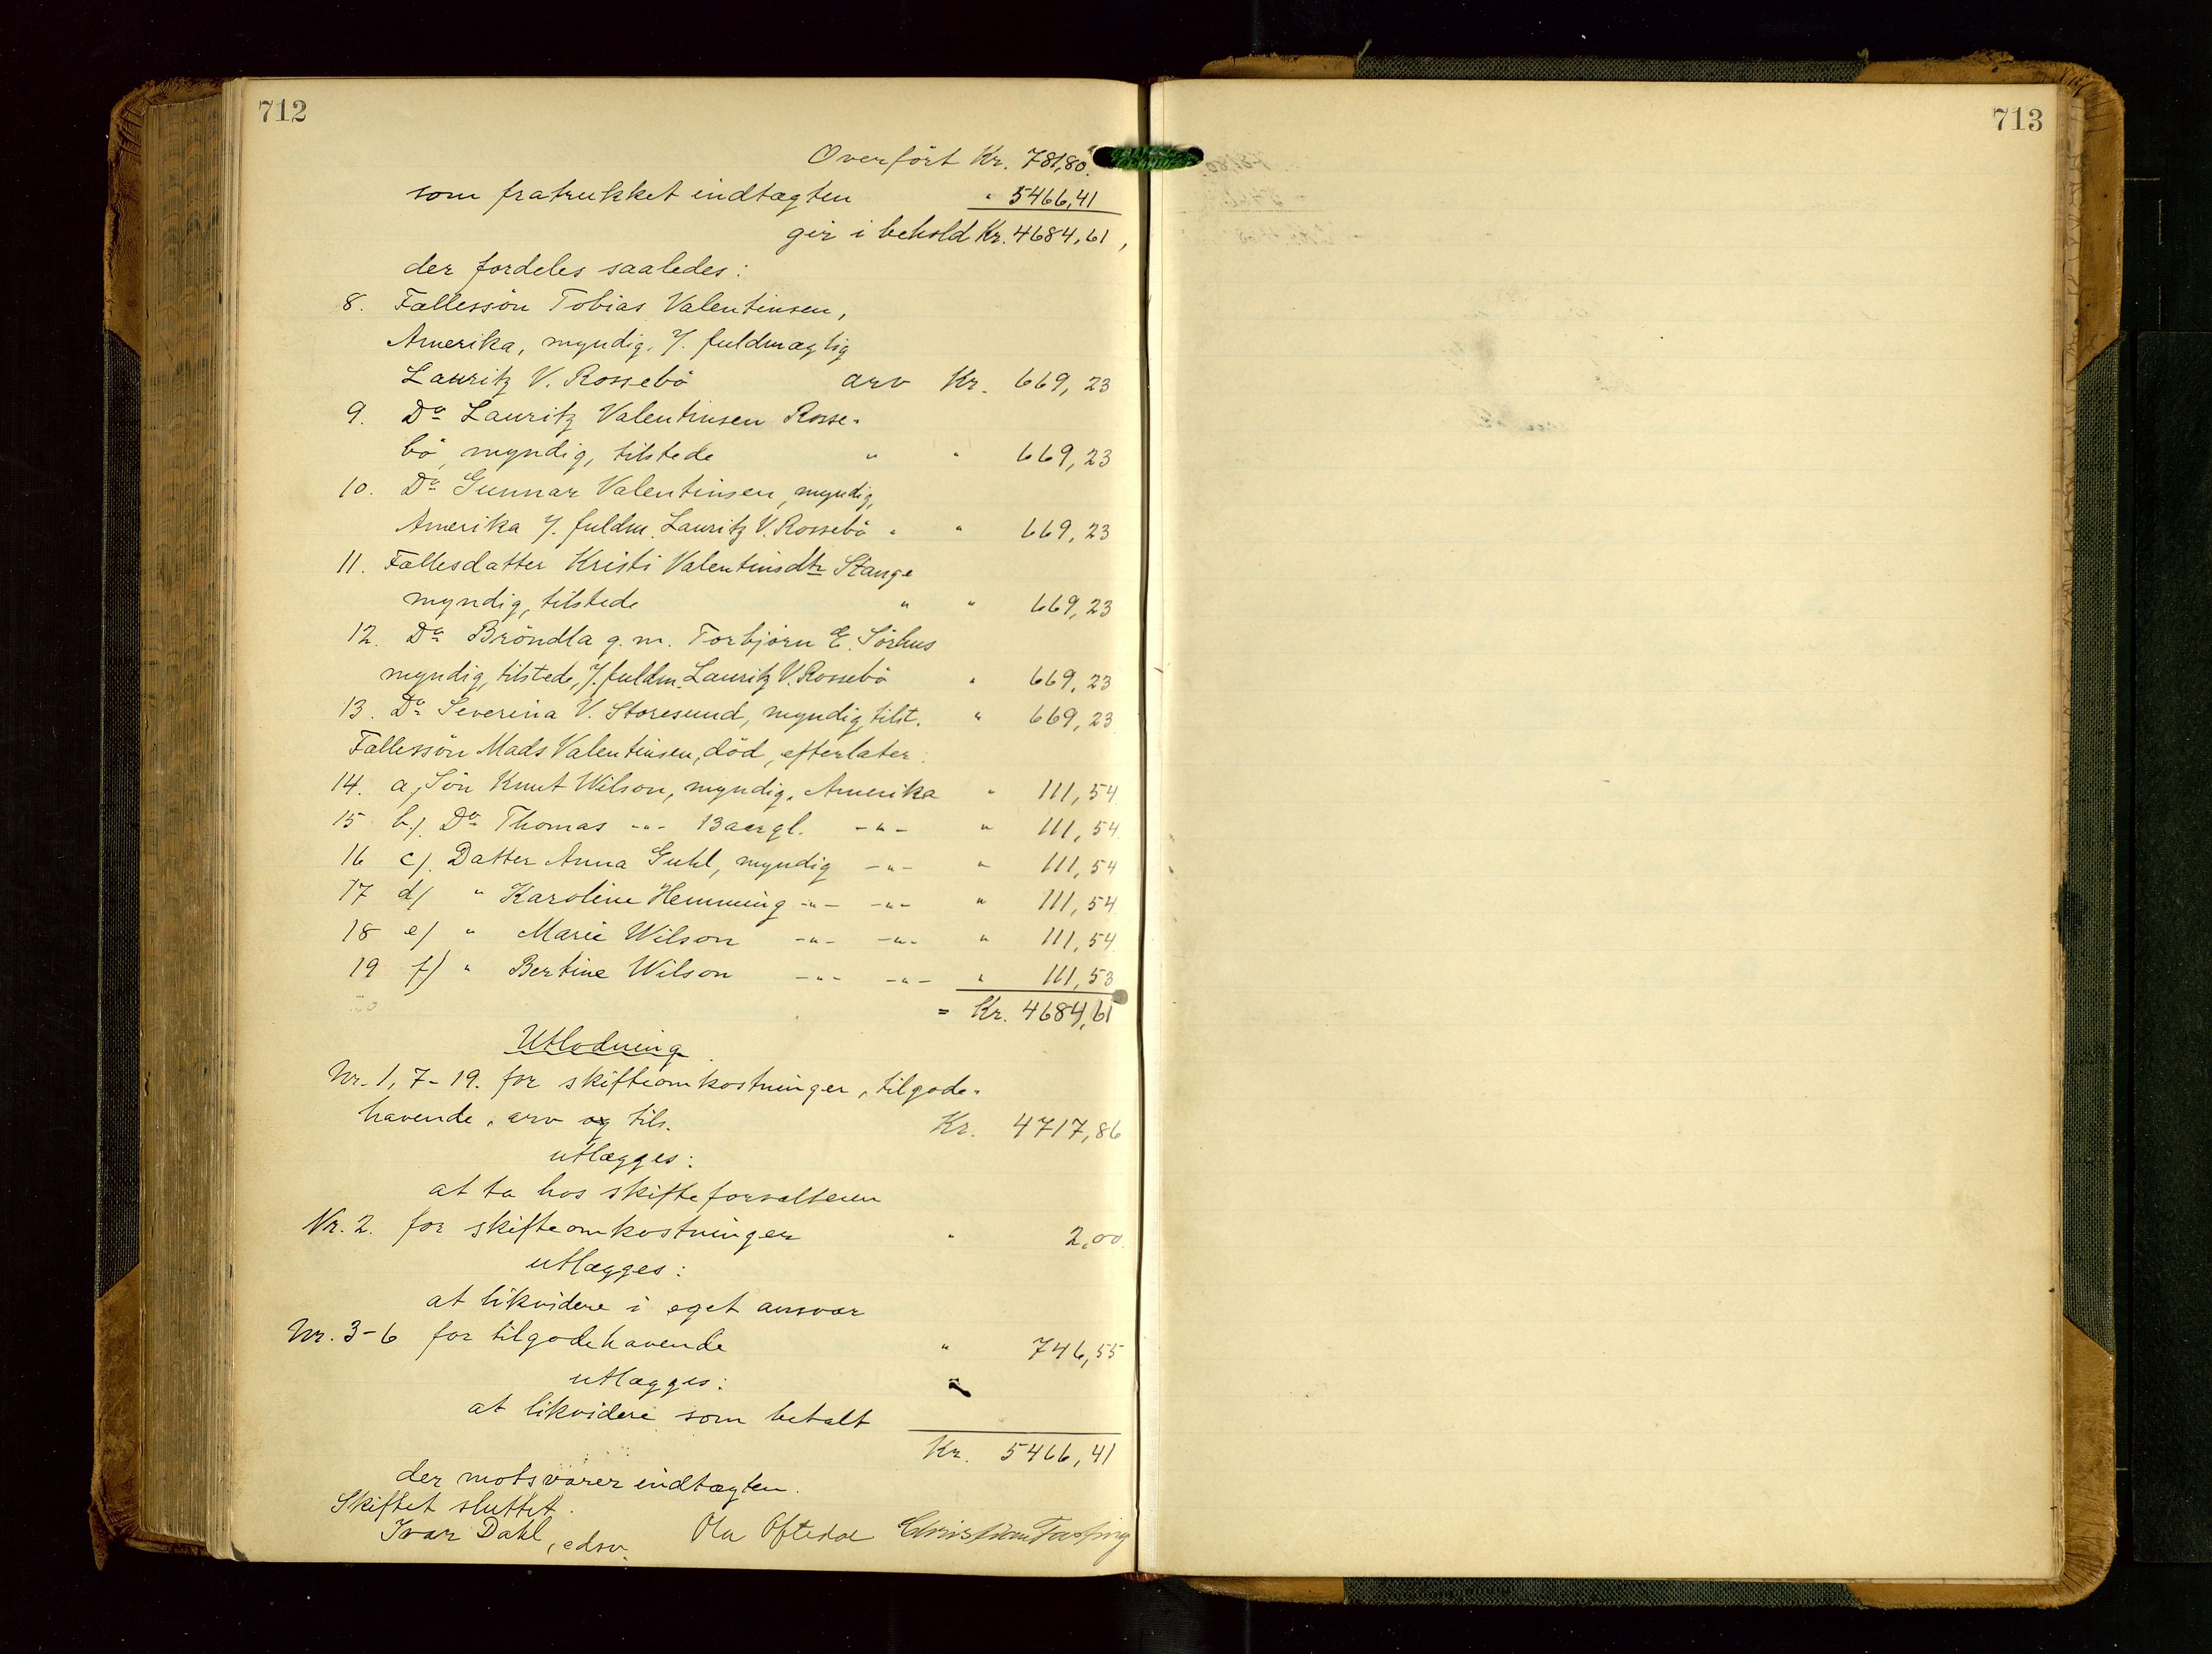 712
Overført Kr. 781,80.
som fratrukket indtægten " 5466,41
gir i behold Kr. 4684,61,
der fordeles saaledes:
8. Fællessøn Tobias Valentinsen,
Amerika, myndig, v/. fuldmægtig
Lauritz V. Rossebø arv Kr. 669,23
9. Do Lauritz Valentinsen Rosse-
bø, myndig, tilstede " " 669,23
10. Do Gunnar Valentinsen, myndig,
Amerika v/. fuldm. Lauritz V. Rossebø " " 669,23
11. Fællesdatter Kristi Valentinsdtr Stange
myndig, tilstede " " 669,23
12. Do Brøndla g. m. Torbjørn E. Sørhus
myndig, tilstede, v/. fuldm. Lauritz V. Rossebø " 669,23
13. Do Severina V. Storesund, myndig, tilst. " 669,23
Fællessøn Mads Valentinsen, død, efterlater:
14. a, Søn Knut Wilson, myndig, Amerika " 111,54
15 b/. Do Thomas -"- 13 aargl. -"- " 111,54.
16 c/. Datter Anna Guhl, myndig -"- " 111,54
17 d/ " Karoline Hemming -"- -"- " 111,54
18 e/ " Marie Wilson -"- -"- " 111,54.
19 f/ " Bertine Wilson -"- -"- " 111,53
= Kr. 4684,61
Utlodning
Nr. 1, 7-19. for skifteomkostninger, tilgode-
havende, arv og tils. Kr. 4717,86
utlægges:
at ta hos skifteforvalteren
Nr. 2. for skifteomkostninger " 2,00.
utlægges:
at likvidere i eget ansvar
Nr. 3-6 for tilgodehavende " 746,55
utlægges:
at likvidere som betalt
Kr. 5466,41
der motsvarer indtægten.
Skiftet sluttet.
Ivar Dahl, edsv. Ola Oftedal Christian Tasting
713